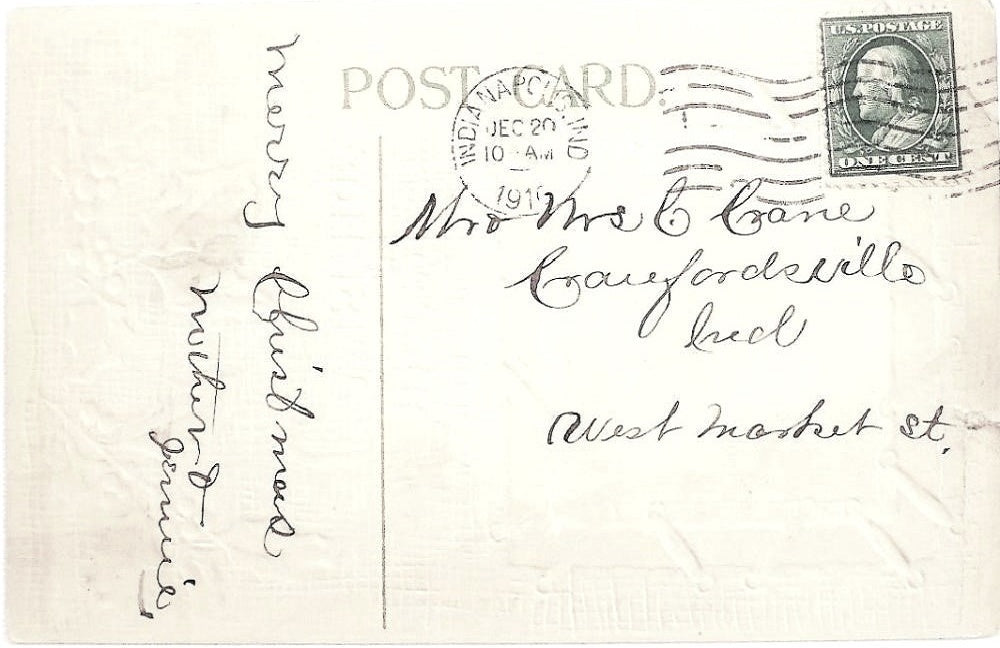 POST CARD.
INDIANAPOLIS, IND
DEC 20
10 AM
U.S. POSTAGE
ONE CENT
Mrs C Crane
Crawfordsville
Ind
West Market St.
Merry Christmas
Mother &
Jennie